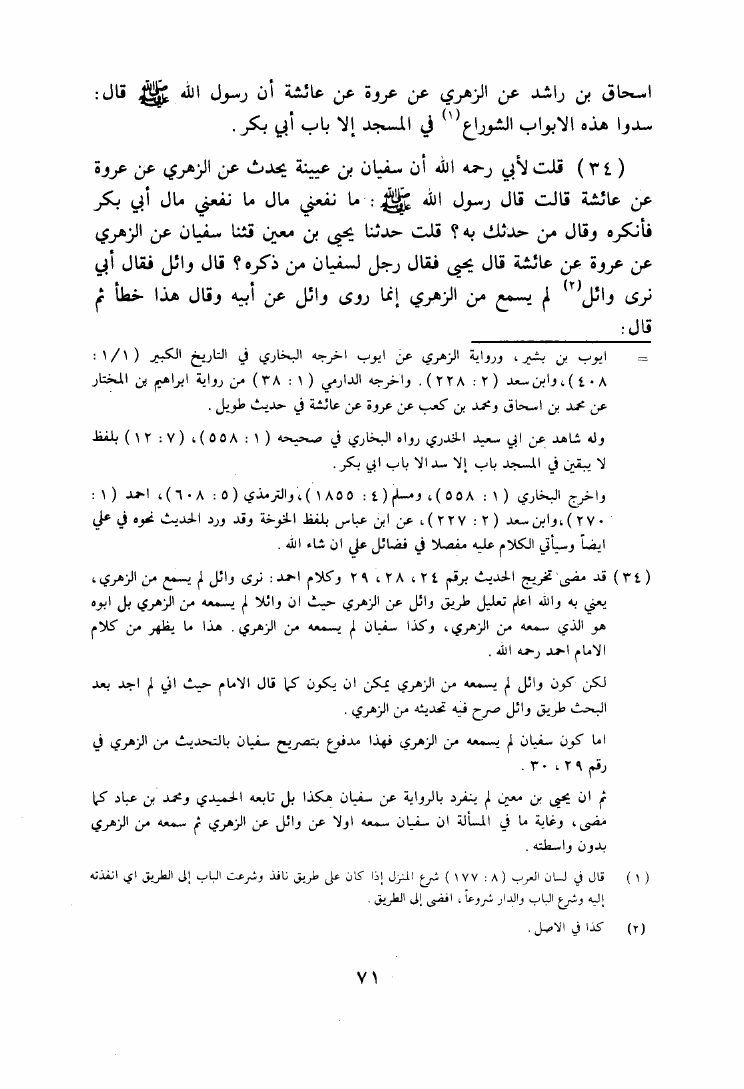 اسحاق بن راشد عن الزهري عن عروة عن عائشة أن رسول الله ﷺ قال:
سدوا هذه الابواب الشوراع(١) في المسجد إلا باب أبي بكر.
(٣٤) قلت لأبي رحمه الله أن سفيان بن عيينة يحدث عن الزهري عن عروة
عن عائشة قالت قال رسول الله ﷺ: ما نفعني مال ما نفعني مال أبي بكر
فأنكره وقال من حدثك به؟ قلت حدثنا يحيى بن معين قثنا سفيان عن الزهري
عن عروة عن عائشة قال يحيى فقال رجل لسفيان من ذكره؟ قال وائل فقال أبي
نرى وائل(٢) لم يسمع من الزهري إنما روى وائل عن أبيه وقال هذا خطأ ثم
قال:
= ايوب بن بشير، ورواية الزهري عن ايوب اخرجه البخاري في التاريخ الكبير (١/١ :
٤٠٨)، وابن سعد (٢ : ٢٢٨). واخرجه الدارمي (١ : ٣٨) من رواية ابراهيم بن المختار
عن محمد بن اسحاق ومحمد بن كعب عن عروة عن عائشة في حديث طويل.
وله شاهد عن ابي سعيد الخدري رواه البخاري في صحيحه (١ : ٥٥٨)، (٧ : ١٢) بلفظ
لا يبقين في المسجد باب إلا سد الا باب ابي بكر.
واخرج البخاري (١ : ٥٥٨)، ومسلم (٤ : ١٨٥٥)، والترمذي (٥ : ٦٠٨)، احمد (١ :
٢٧٠)، وابن سعد (٢ : ٢٢٧)، عن ابن عباس بلفظ الخوخة وقد ورد الحديث نحوه في علي
ايضاً وسيأتي الكلام عليه مفصلا في فضائل علي ان شاء الله.
(٣٤) قد مضى تخريج الحديث برقم ٢٤، ٢٨، ٢٩ وكلام احمد: نرى وائل لم يسمع من الزهري،
يعني به والله اعلم تعليل طريق وائل عن الزهري حيث ان وائلا لم يسمعه من الزهري بل ابوه
هو الذي سمعه من الزهري، وكذا سفيان لم يسمعه من الزهري. هذا ما يظهر من كلام
الامام احمد رحمه الله.
لكن كون وائل لم يسمعه من الزهري يمكن ان يكون كما قال الامام حيث اني لم اجد بعد
البحث طريق وائل صرح فيه تحديثه من الزهري.
اما كون سفيان لم يسمعه من الزهري فهذا مدفوع بتصريح سفيان بالتحديث من الزهري في
رقم ٢٩، ٣٠.
ثم ان يحيى بن معين لم ينفرد بالرواية عن سفيان هكذا بل تابعه الحميدي ومحمد بن عباد كما
مضى، وغاية ما في المسألة ان سفيان سمعه اولا عن وائل عن الزهري ثم سمعه من الزهري
بدون واسطته.
(١) قال في لسان العرب (٨ : ١٧٧) شرع المنزل إذا كان على طريق نافذ وشرعت الباب إلى الطريق اي انفذته
إليه وشرع الباب والدار شروعاً، افضى إلى الطريق.
(٢) كذا في الاصل.
٧١